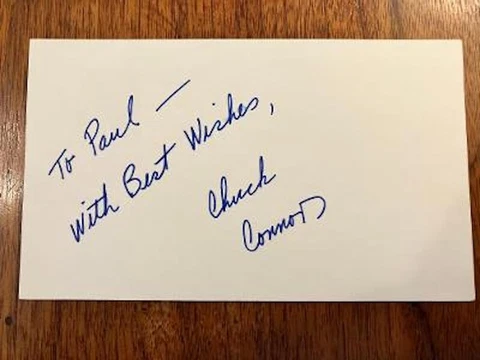 To Paul —
With Best Wishes,
Chuck
Connors